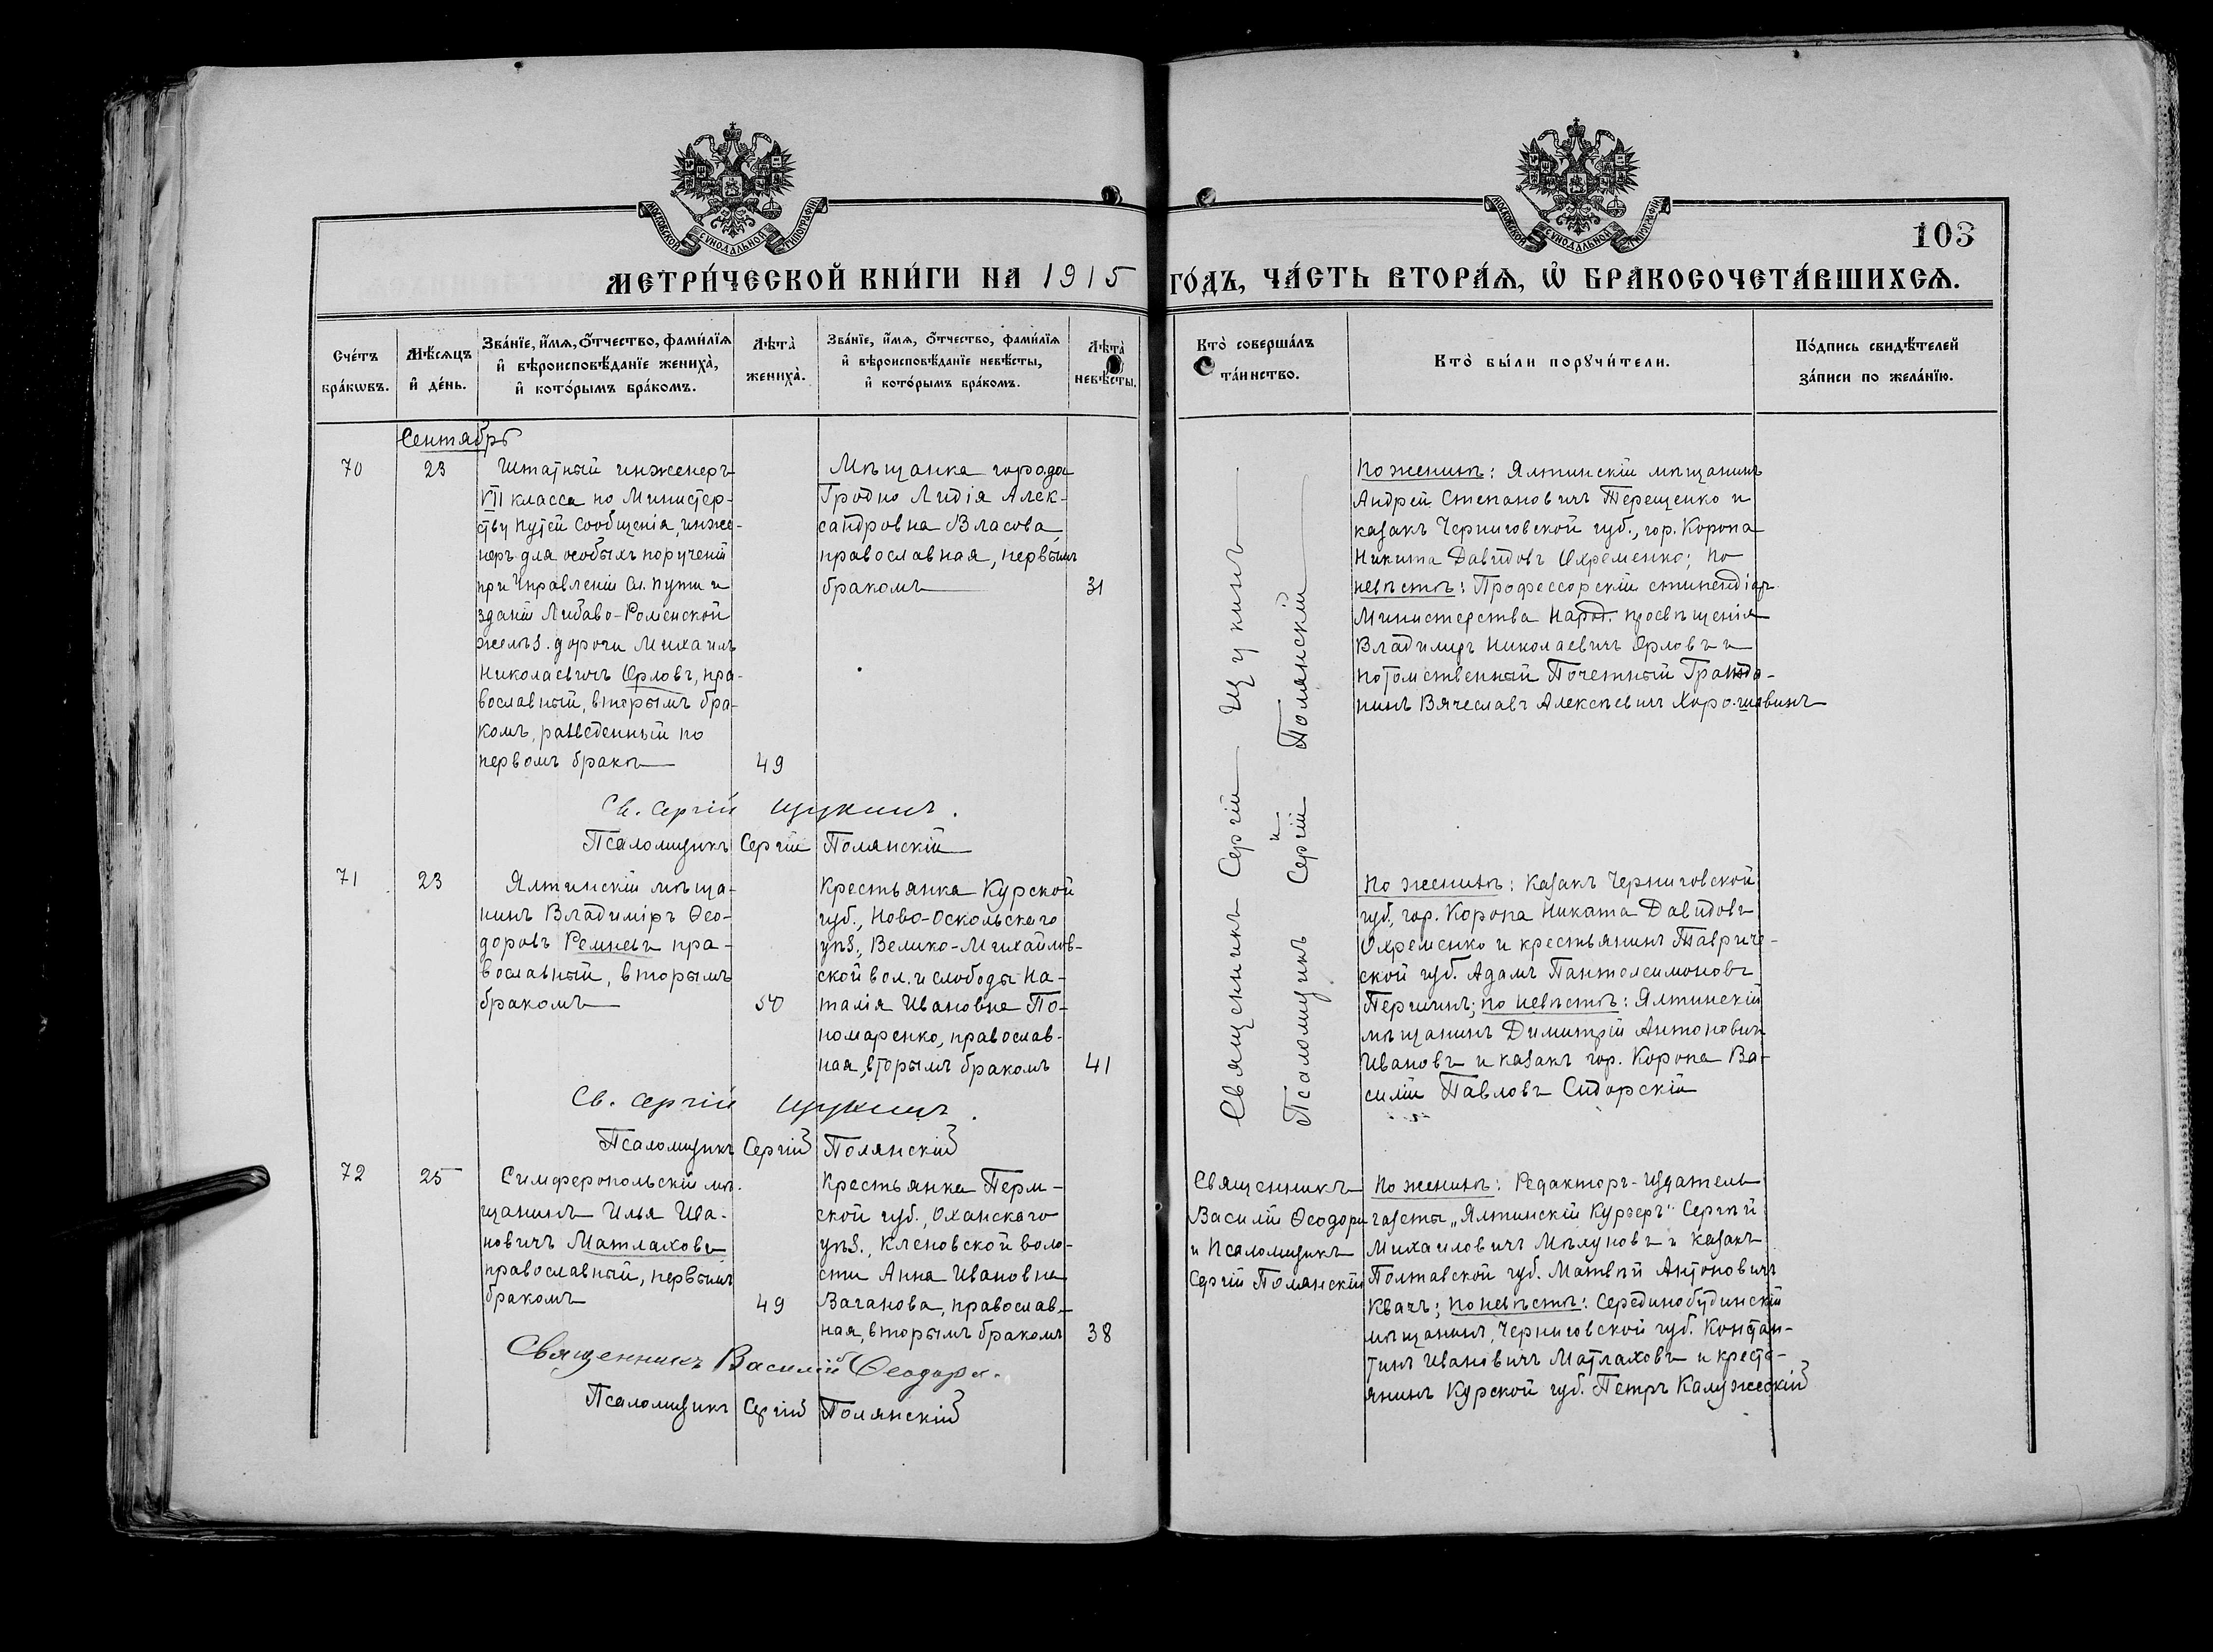 МОСКОВСКОЙ СѴНОДАЛЬНОЙ ТИПОГРАФІИ
МОСКОВСКОЙ СѴНОДАЛЬНОЙ ТИПОГРАФІИ
103
МЕТРИ́ЧЕСКОЙ КНИ́ГИ НА 1915 ГО́ДЪ, ЧА́СТЬ ВТОРА́Ѧ, Ѽ БРАКОСОЧЕТА́ВШИХСѦ.
Сче́тъ бра́кѡвъ.
Мѣ́сѧцъ и҆ де́нь.
Зва́нїе, и҆́мѧ, ѻ҆́тчество, фами́лїѧ и҆ вѣроисповѣ́данїе жениха̀, и҆ кото́рымъ бра́комъ.
Лѣта̀ жениха̀.
Зва́нїе, и҆́мѧ, ѻ҆́тчество, фами́лїѧ и҆ вѣроисповѣ́данїе невѣ́сты, и҆ кото́рымъ бра́комъ.
Лѣта̀ невѣ́сты.
Кто̀ соверша́лъ та́инство.
Кто̀ бы́ли порꙋчи́тели.
По́дпись свидѣ́телей за́писи по жела́нїю.
Сентябрь
70
23
Штатный инженеръ
VII класса по Министер-
ству путей сообщенія, инже-
неръ для особыхъ порученій
при Управленіи Сл. пути и
зданій Либаво-Роменской
желѣз. дороги Михаилъ
Николаевичъ Орловъ, пра-
вославный, вторымъ бра-
комъ, разведенный по
первомъ бракѣ
49
Мѣщанка города
Гродно Лидія Алек-
сандровна Власова,
православная, первымъ
бракомъ
31
Священникъ Сергій Щукинъ
и
Псаломщикъ Сергій Полянскій
По женихѣ: Ялтинскій мѣщанинъ
Андрей Степановичъ Терещенко и
казакъ Черниговской губ., гор. Коропа
Никита Давидовъ Охременко; по
невѣстѣ: Профессорскій стипендіатъ
Министерства Народ. просвѣщенія
Владимиръ Николаевичъ Орловъ и
потомственный Почетный Гражда-
нинъ Вячеславъ Алексѣевичъ Хорошавинъ
Св. Сергій Щукинъ.
Псаломщикъ Сергій Полянскій
71
23
Ялтинскій мѣща-
нинъ Владиміръ Ѳео-
доровъ Ремневъ пра-
вославный, вторымъ
бракомъ
50
Крестьянка Курской
губ., Ново-Оскольскаго
уѣз., Велико-Михайлов-
ской вол. и слободы На-
талія Ивановна По-
номаренко, православ-
ная, вторымъ бракомъ
41
По женихѣ: Казакъ Черниговской
губ., гор. Коропа Никита Давидовъ
Охременко и крестьянинъ Тавриче-
ской губ. Адамъ Пантелеимоновъ
Першинъ; по невѣстѣ: Ялтинскій
мѣщанинъ Димитрій Антоновичъ
Ивановъ и казакъ гор. Коропа Ва-
силій Павловъ Сидорскій
Св. Сергій Щукинъ.
Псаломщикъ Сергій Полянскій
72
25
Симферопольскій мѣ-
щанинъ Илья Ива-
новичъ Матлаховъ
православный, первымъ
бракомъ
49
Крестьянка Перм-
ской губ., Оханскаго
уѣз., Кленовской воло-
сти Анна Ивановна
Ваганова, православ-
ная, вторымъ бракомъ
38
Священникъ
Василій Ѳеодори
и Псаломщикъ
Сергій Полянскій
По женихѣ: Редакторъ-Издатель
газеты „Ялтинскій Курьеръ" Сергѣй
Михаиловичъ Мѣлуновъ и казакъ
Полтавской губ. Матвѣй Антоновичъ
Квачъ; по невѣстѣ: Серединобудинскій
мѣщанинъ, Черниговской губ. Констан-
тинъ Ивановичъ Матлаховъ и кресть-
янинъ Курской губ. Петръ Калужскій
Священникъ Василій Ѳеодори.
Псаломщикъ Сергій Полянскій